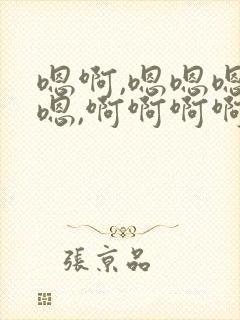 嗯啊,嗯嗯嗯
嗯,啊啊啊啊
張京品